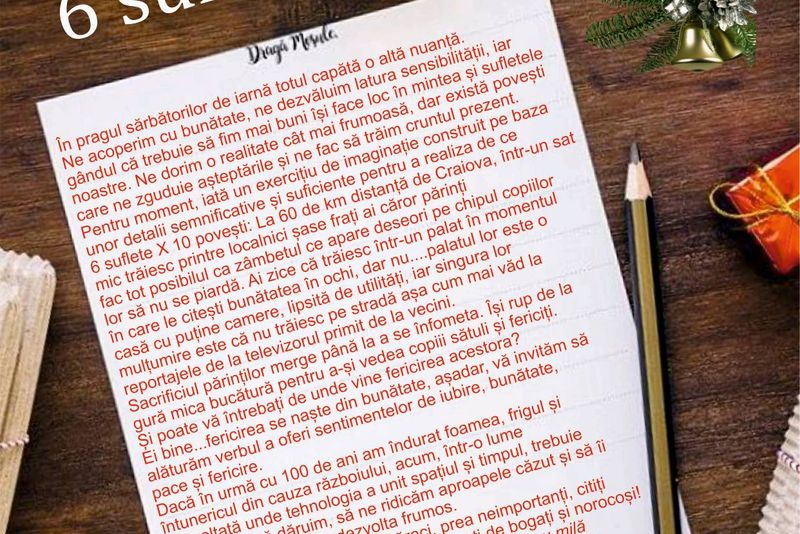 6
Dragă Moșule,
În pragul sărbătorilor de iarnă totul capătă o altă nuanță.
Ne acoperim cu bunătate, ne dezvăluim latura sensibilității, iar
gândul că trebuie să fim mai buni își face loc în mintea și sufletele
noastre. Ne dorim o realitate cât mai frumoasă, dar există povești
care ne zguduie așteptările și ne fac să trăim cruntul prezent.
Pentru moment, iată un exercițiu de imaginație construit pe baza
unor detalii semnificative și suficiente pentru a realiza de ce
6 suflete X 10 povești: La 60 de km distanță de Craiova, într-un sat
mic trăiesc printre localnici șase frați ai căror părinți
fac tot posibilul ca zâmbetul ce apare deseori pe chipul copiilor
lor să nu se piardă. Ai zice că trăiesc într-un palat în momentul
în care le citești bunătatea în ochi, dar nu....palatul lor este o
casă cu puține camere, lipsită de utilități, iar singura lor
mulțumire este că nu trăiesc pe stradă așa cum mai văd la
reportajele de la televizorul primit de la vecini.
Sacrificiul părinților merge până la a se înfometa. Își rup de la
gură mica bucătură pentru a-și vedea copiii sătuli și fericiți.
Și poate vă întrebați de unde vine fericirea acestora?
Ei bine...fericirea se naște din bunătate, așadar, vă invităm să
alăturăm verbul a oferi sentimentelor de iubire, bunătate,
pace și fericire.
Dacă în urmă cu 100 de ani am îndurat foamea, frigul și
întunericul din cauza războiului, acum, într-o lume
unde tehnologia a unit spațiul și timpul, trebuie
dăruim, să ne ridicăm aproapele căzut și să îi
dezvolta frumos.
prea neimportanți, citiți
de bogați și norocoși!
milă